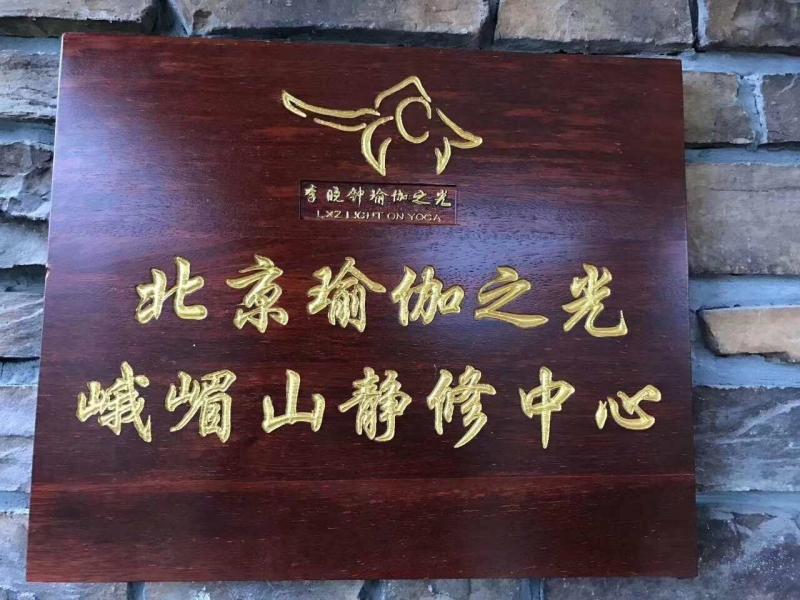 李晓钟瑜伽之光
LXZ LIGHT ON YOGA
北京瑜伽之光
峨嵋山静修中心